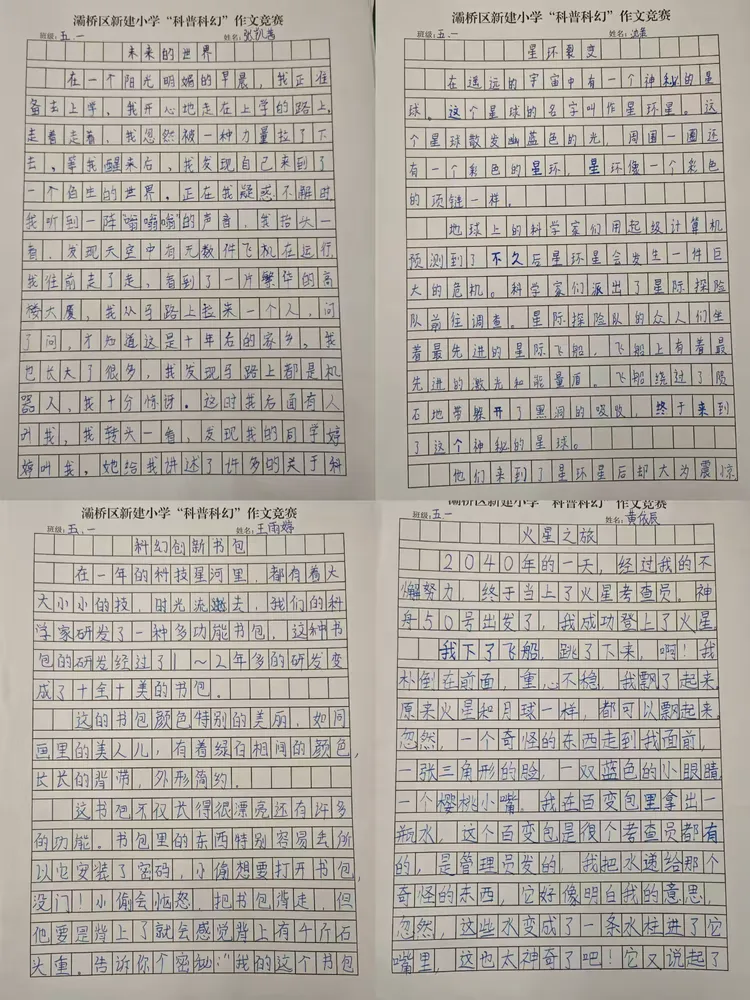 灞桥区新建小学“科普科幻”作文竞赛
班级：五.一 姓名：
未来的世界
在一个阳光明媚的早晨，我正准
备去上学，我开心地走在上学的路上，
走着走着，我忽然被一种力量拉了下
去，等我醒来后，我发现自己来到了
一个陌生的世界。正在我疑惑不解时
我听到一阵“嗡嗡嗡”的声音，我抬头一
看，发现天空中有无数件飞机在运行，
我往前走了走，看到了一片繁华的高
楼大厦，我从马路上拉来一个人，问
了问，才知道这是十年后的家乡，我
也长大了很多，我发现马路上都是机
器人，我十分惊讶。这时我后面有人
叫我，我转头一看，发现我的同学婷
婷叫我，她给我讲述了许多的关于科
灞桥区新建小学“科普科幻”作文竞赛
班级：五.一 姓名：
星环裂变
在遥远的宇宙中有一个神秘的星
球。这个星球的名字叫作星环星。这
个星球散发幽蓝色的光，周围一圈还
有一个彩色的星环，星环像一个彩色
的项链一样。
地球上的科学家们用超级计算机
预测到了不久后星环星会发生一件巨
大的危机。科学家们派出了星际探险
队前往调查。星际探险队的众人们坐
着最先进的星际飞船，飞船上有着最
先进的激光和能量盾。飞船绕过了陨
石地带躲开了黑洞的吸收，终于来到
了这个神秘的星球。
他们来到了星环星后却大为震惊
灞桥区新建小学“科普科幻”作文竞赛
班级：五.一 姓名：王雨婷
科幻创新书包
在一年的科技星河里，都有着大
大小小的技，时光流逝去，我们的科
学家研发了一种多功能书包，这种书
包的研发经过了11～2年多的研发变
成了十全十美的书包。
这的书包颜色特别的美丽，如同
画里的美人儿，有着绿白相间的颜色，
长长的背带，外形简约。
这书包不仅长得很漂亮还有许多
的功能。书包里的东西特别容易丢所
以它安装了密码，小偷想要打开书包，
没门！小偷会恼怒，把书包背走，但
他要是背上了就会感觉背上有4斤石
头重。告诉你个密秘：“我的这个书包
灞桥区新建小学“科普科幻”作文竞赛
班级：五.一 姓名：黄依辰
火星之旅
2040年的一天，经过我的不
懈努力，终于当上了火星考查员。神
舟50号出发了，我成功登上了火星。
我下了飞船，跳了下来，啊！我
扑倒在前面，重心不稳，我飘了起来，
原来火星和月球一样，都可以飘起来。
忽然，一个奇怪的东西走到我面前，
一张三角形的脸，一双蓝色的小眼睛，
一个樱桃小嘴。我在百变包里拿出一
瓶水，这个百变包是很个考查员都有
的，是管理员发的，我把水递给那个
奇怪的东西，它好像明白我的意思，
忽然，这些水变成了一条水柱进了它
嘴里，这也太神奇了吧！它又说起了